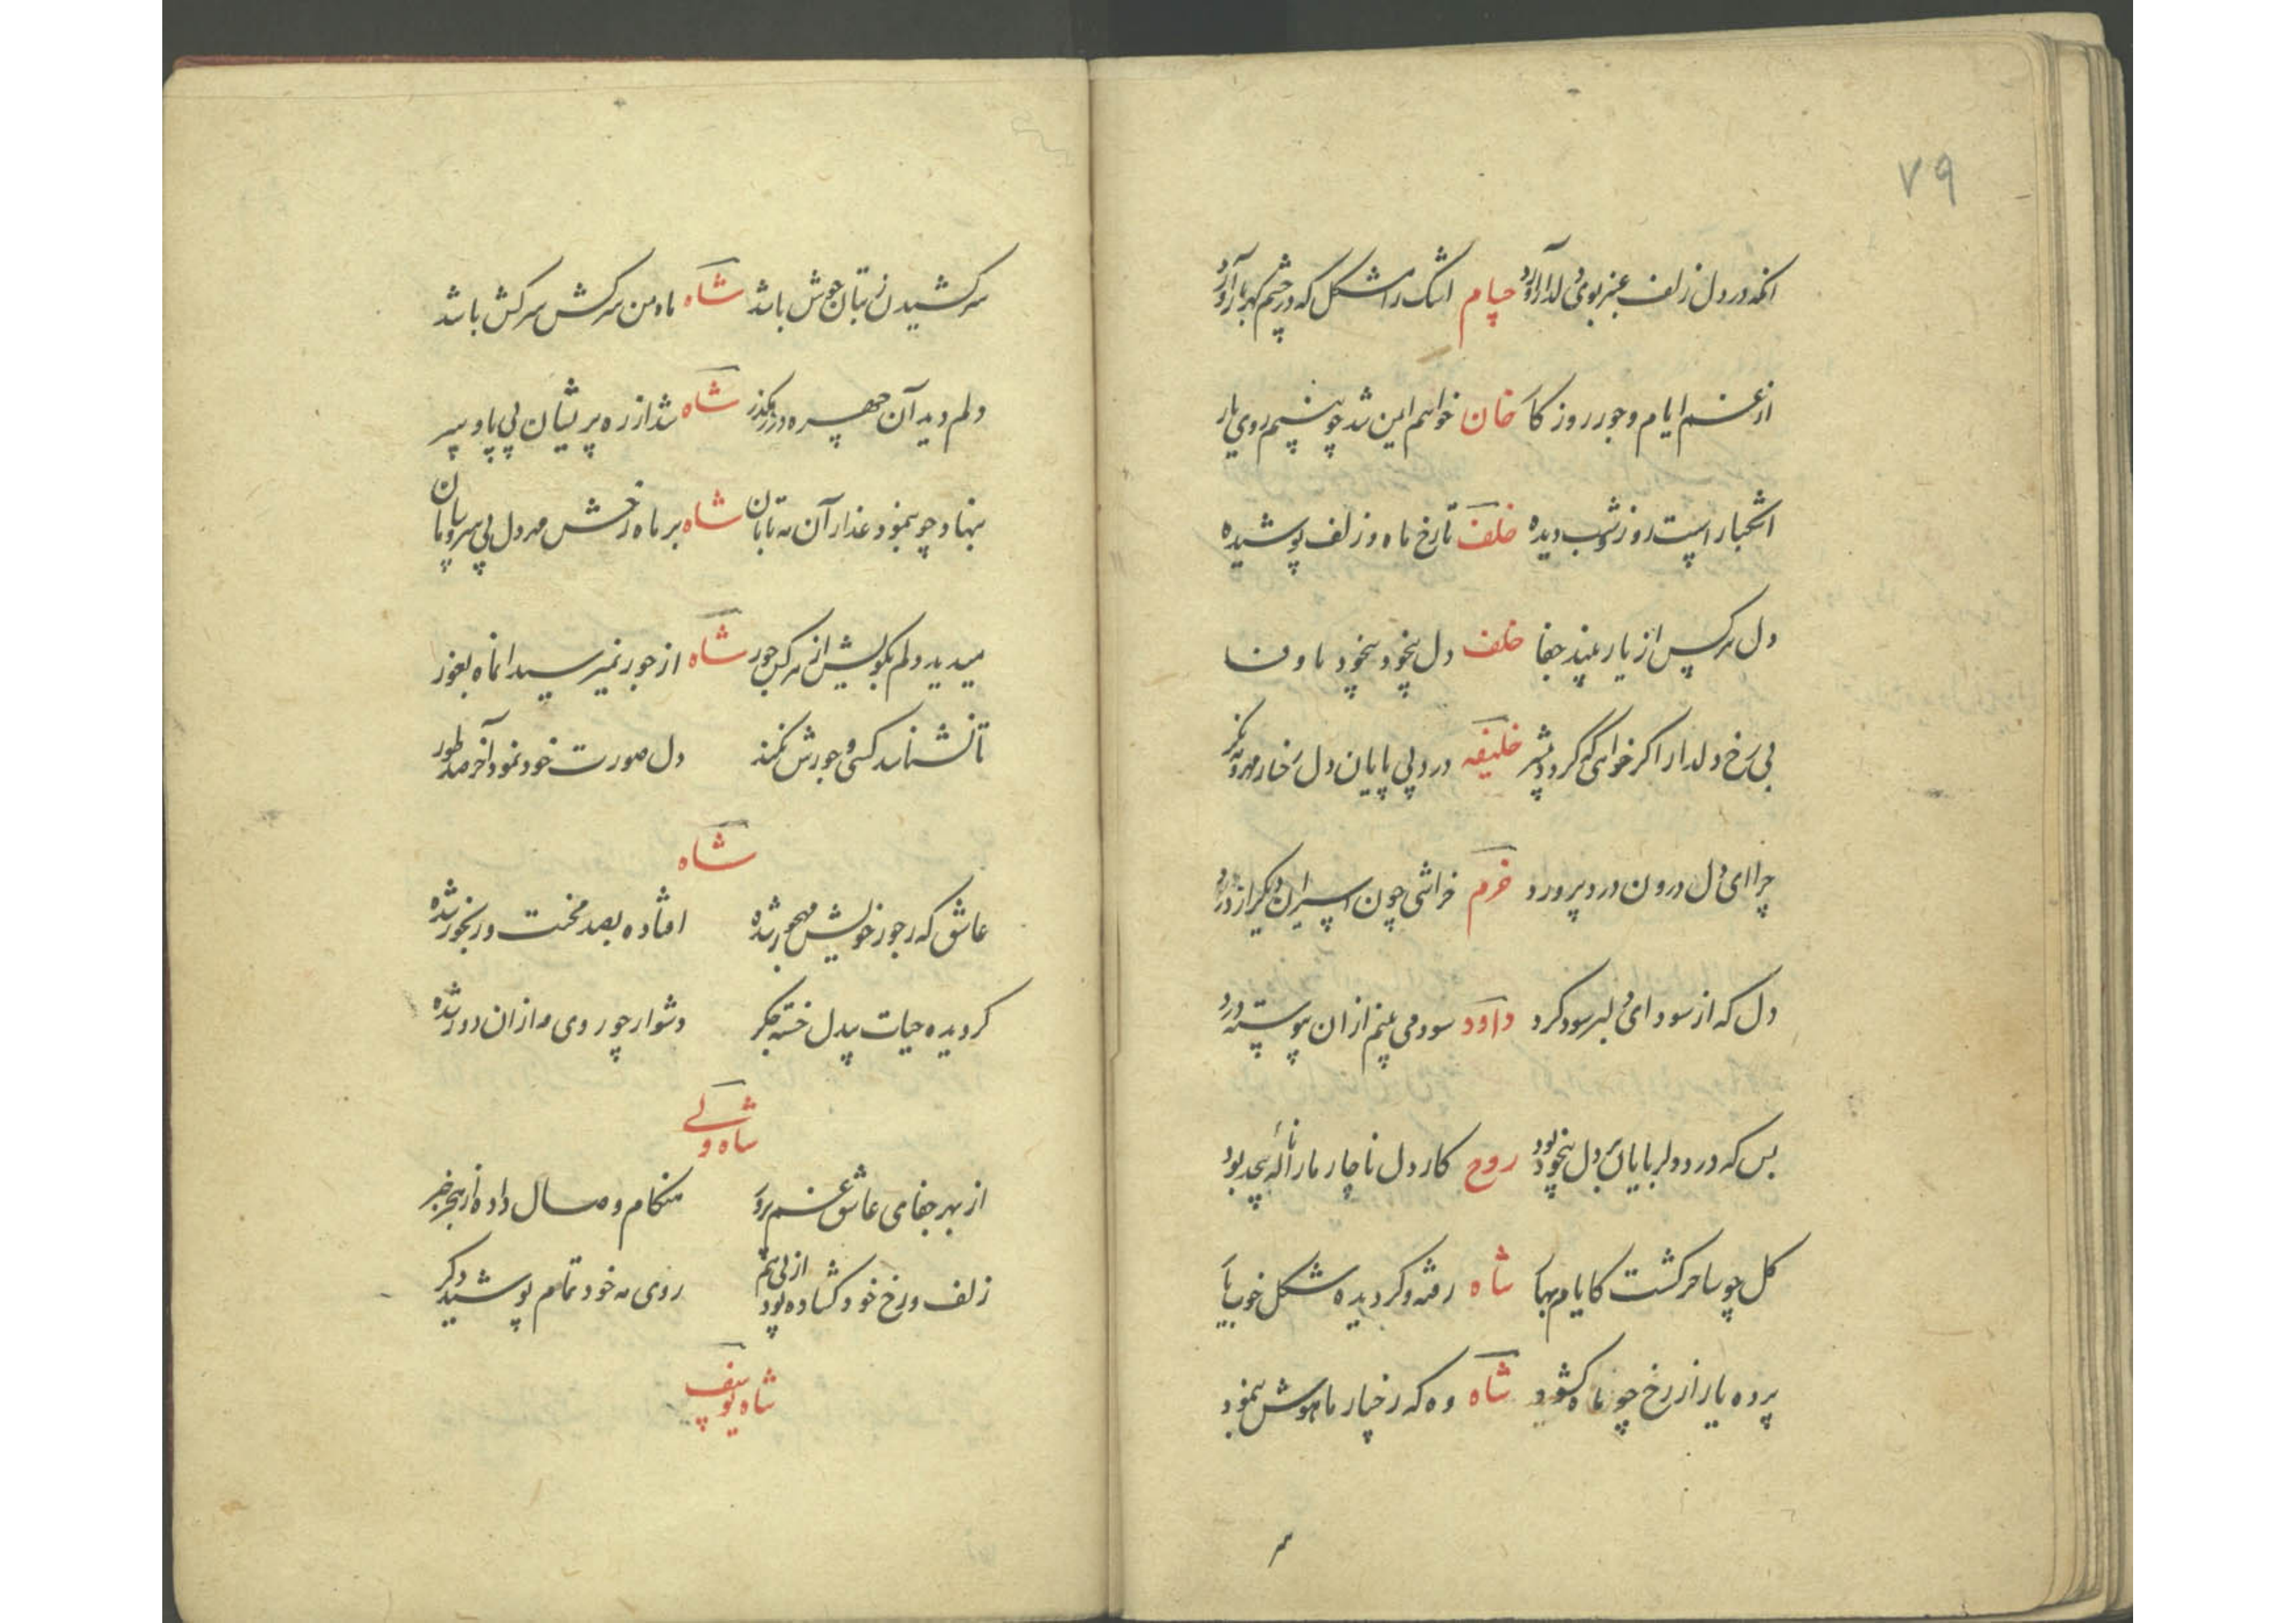 ۷۹
آنکه در دل زلف عنبر بوی دلدار آورد حسام اشک را مشکل که در چشم گهربار آورد
از غم ایام و جور روزکا خان خواهم ایمن شد چو بینم روی یار
اشکبار است روز و شب دیده خلف تا رخ ماه و زلف پوشیده
دل هر کس از یار بیند جفا خلف دل بیخود بیخود ما وفا
بی رخ دلدار اگر خواهی که گردد بیشتر خلیفه درد بی پایان دل رخسار مهرو نگر
چرا ای دل درون درد پرورد خرم خراشی چون اسیران دیگر از درد
دل که از سودای دلبر سود کرد داود سود می بینم ازان پیوسته درد
بس که در دور لبر با یاس دل بیخود بود روح کار دل ناچار ما را ناله بیحد بود
کل چو ساحر کشت کایام بها شاه رفته و کردیده شکل خوبیا
پرده یار از رخ چو ماه کشود شاه وه که رخسار ماهوش بنمود
سر کشیدن ز بتان خوش باشد شاه ماه من سرکش سرکش باشد
دلم دید آن چهره در رهکذر شاه شد از ره پریشان بی پا و سر
بنهاد چو بنمود عذار آن مه تابان شاه بر ماه رخش مهر دل بی سر و پایان
میدید دلم بکویش از هر کس جور شاه از جور نمیرسید انماه بغور
تا نشناسد کسی و جورش نکند دل صورت خود نمود آخر صد طور
شاه
عاشق که ز جور خویش مهجور شده افتاده بصد محنت و رنجور شده
کردیده حیات بیدل خسته جکر دشوار چو روی مه ازان دور شده
شاه ولی
از بهر جفای عاشق غم پرو هنکام وصال داده از هجر خبر
زلف و رخ خود کشاده بود از پی هم روی مه خود تمام پوشید دکر
شاه یوسف